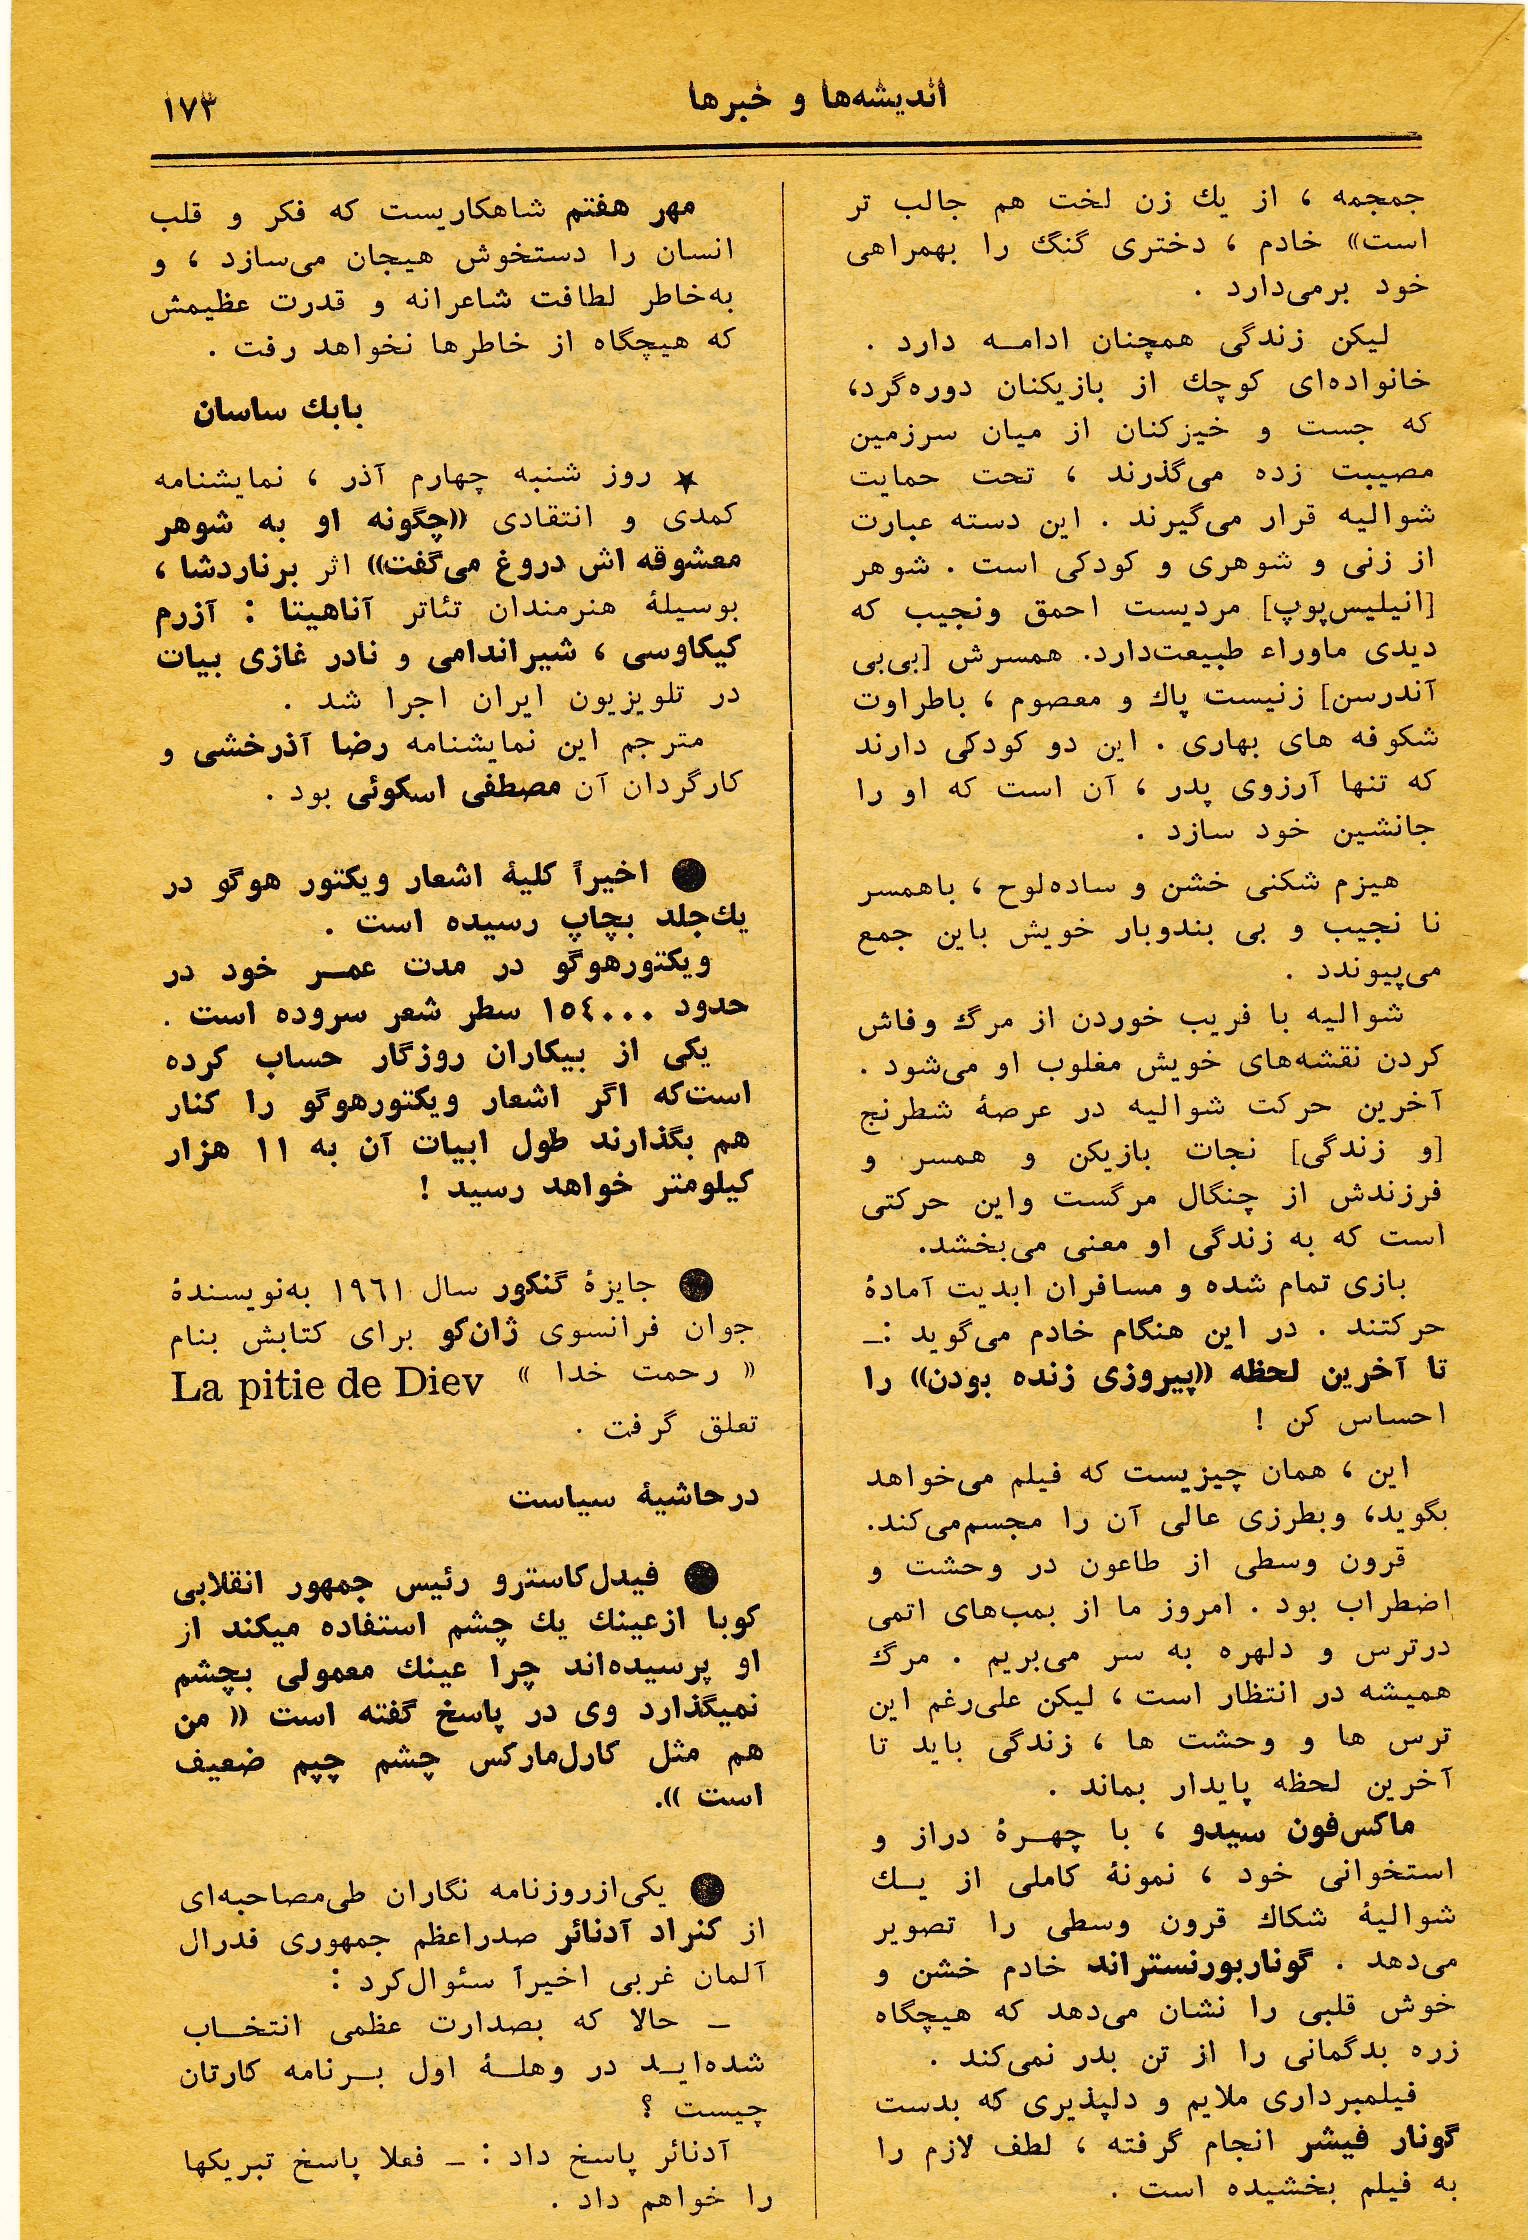 اندیشه‌ها و خبرها
۱۷۳
جمجمه ، از یك زن لخت هم جالب تر
است» خادم ، دختری گنگ را بهمراهی
خود برمی‌دارد .
لیکن زندگی همچنان ادامه دارد .
خانواده‌ای کوچك از بازیکنان دوره‌گرد،
که جست و خیزکنان از میان سرزمین
مصیبت زده می‌گذرند ، تحت حمایت
شوالیه قرار می‌گیرند . این دسته عبارت
از زنی و شوهری و کودکی است . شوهر
[انیلیس‌پوپ] مردیست احمق ونجیب که
دیدی ماوراء طبیعت‌دارد. همسرش [بی‌بی
آندرسن] زنیست پاك و معصوم ، باطراوت
شکوفه های بهاری . این دو کودکی دارند
که تنها آرزوی پدر ، آن است که او را
جانشین خود سازد .
هیزم شکنی خشن و ساده‌لوح ، باهمسر
نا نجیب و بی بندوبار خویش باین جمع
می‌پیوندد .
شوالیه با فریب خوردن از مرگ وفاش
کردن نقشه‌های خویش مغلوب او می‌شود .
آخرین حرکت شوالیه در عرصهٔ شطرنج
[و زندگی] نجات بازیکن و همسر و
فرزندش از چنگال مرگست واین حرکتی
است که به زندگی او معنی می‌بخشد.
بازی تمام شده و مسافران ابدیت آمادهٔ
حرکتند . در این هنگام خادم می‌گوید :ـ
تا آخرین لحظه «پیروزی زنده بودن» را
احساس کن !
این ، همان چیزیست که فیلم می‌خواهد
بگوید، وبطرزی عالی آن را مجسم‌می‌کند.
قرون وسطی از طاعون در وحشت و
اضطراب بود . امروز ما از بمب‌های اتمی
درترس و دلهره به سر می‌بریم . مرگ
همیشه در انتظار است ، لیکن علی‌رغم این
ترس ها و وحشت ها ، زندگی باید تا
آخرین لحظه پایدار بماند .
ماکس‌فون سیدو ، با چهرهٔ دراز و
استخوانی خود ، نمونهٔ کاملی از یك
شوالیهٔ شکاك قرون وسطی را تصویر
می‌دهد . گوناربورنستراند خادم خشن و
خوش قلبی را نشان می‌دهد که هیچگاه
زره بدگمانی را از تن بدر نمی‌کند .
فیلمبرداری ملایم و دلپذیری که بدست
گونار فیشر انجام گرفته ، لطف لازم را
به فیلم بخشیده است .
مهر هفتم شاهکاریست که فکر و قلب
انسان را دستخوش هیجان می‌سازد ، و
به‌خاطر لطافت شاعرانه و قدرت عظیمش
که هیچگاه از خاطرها نخواهد رفت .
بابك ساسان
★ روز شنبه چهارم آذر ، نمایشنامه
کمدی و انتقادی «چگونه او به شوهر
معشوقه اش دروغ می‌گفت» اثر برناردشا ،
بوسیلهٔ هنرمندان تئاتر آناهیتا : آزرم
کیکاوسی ، شیراندامی و نادر غازی بیات
در تلویزیون ایران اجرا شد .
مترجم این نمایشنامه رضا آذرخشی و
کارگردان آن مصطفی اسکوئی بود .
● اخیراً کلیهٔ اشعار ویکتور هوگو در
یك‌جلد بچاپ رسیده است .
ویکتورهوگو در مدت عمر خود در
حدود ۱۵٤۰۰۰ سطر شعر سروده است .
یکی از بیکاران روزگار حساب کرده
است‌که اگر اشعار ویکتورهوگو را کنار
هم بگذارند طول ابیات آن به ۱۱ هزار
کیلومتر خواهد رسید !
● جایزهٔ گنکور سال ۱۹۶۱ به‌نویسندهٔ
جوان فرانسوی ژان‌کو برای کتابش بنام
« رحمت خدا » La pitie de Diev
تعلق گرفت .
درحاشیهٔ سیاست
● فیدل‌کاسترو رئیس جمهور انقلابی
کوبا ازعینك یك چشم استفاده میکند از
او پرسیده‌اند چرا عینك معمولی بچشم
نمیگذارد وی در پاسخ گفته است « من
هم مثل کارل‌مارکس چشم چپم ضعیف
است ».
● یکی‌ازروزنامه نگاران طی‌مصاحبه‌ای
از کنراد آدنائر صدراعظم جمهوری فدرال
آلمان غربی اخیراً سئوال‌کرد :
ـ حالا که بصدارت عظمی انتخاب
شده‌اید در وهلهٔ اول برنامه کارتان
چیست ؟
آدنائر پاسخ داد : ـ فعلا پاسخ تبریکها
را خواهم داد .